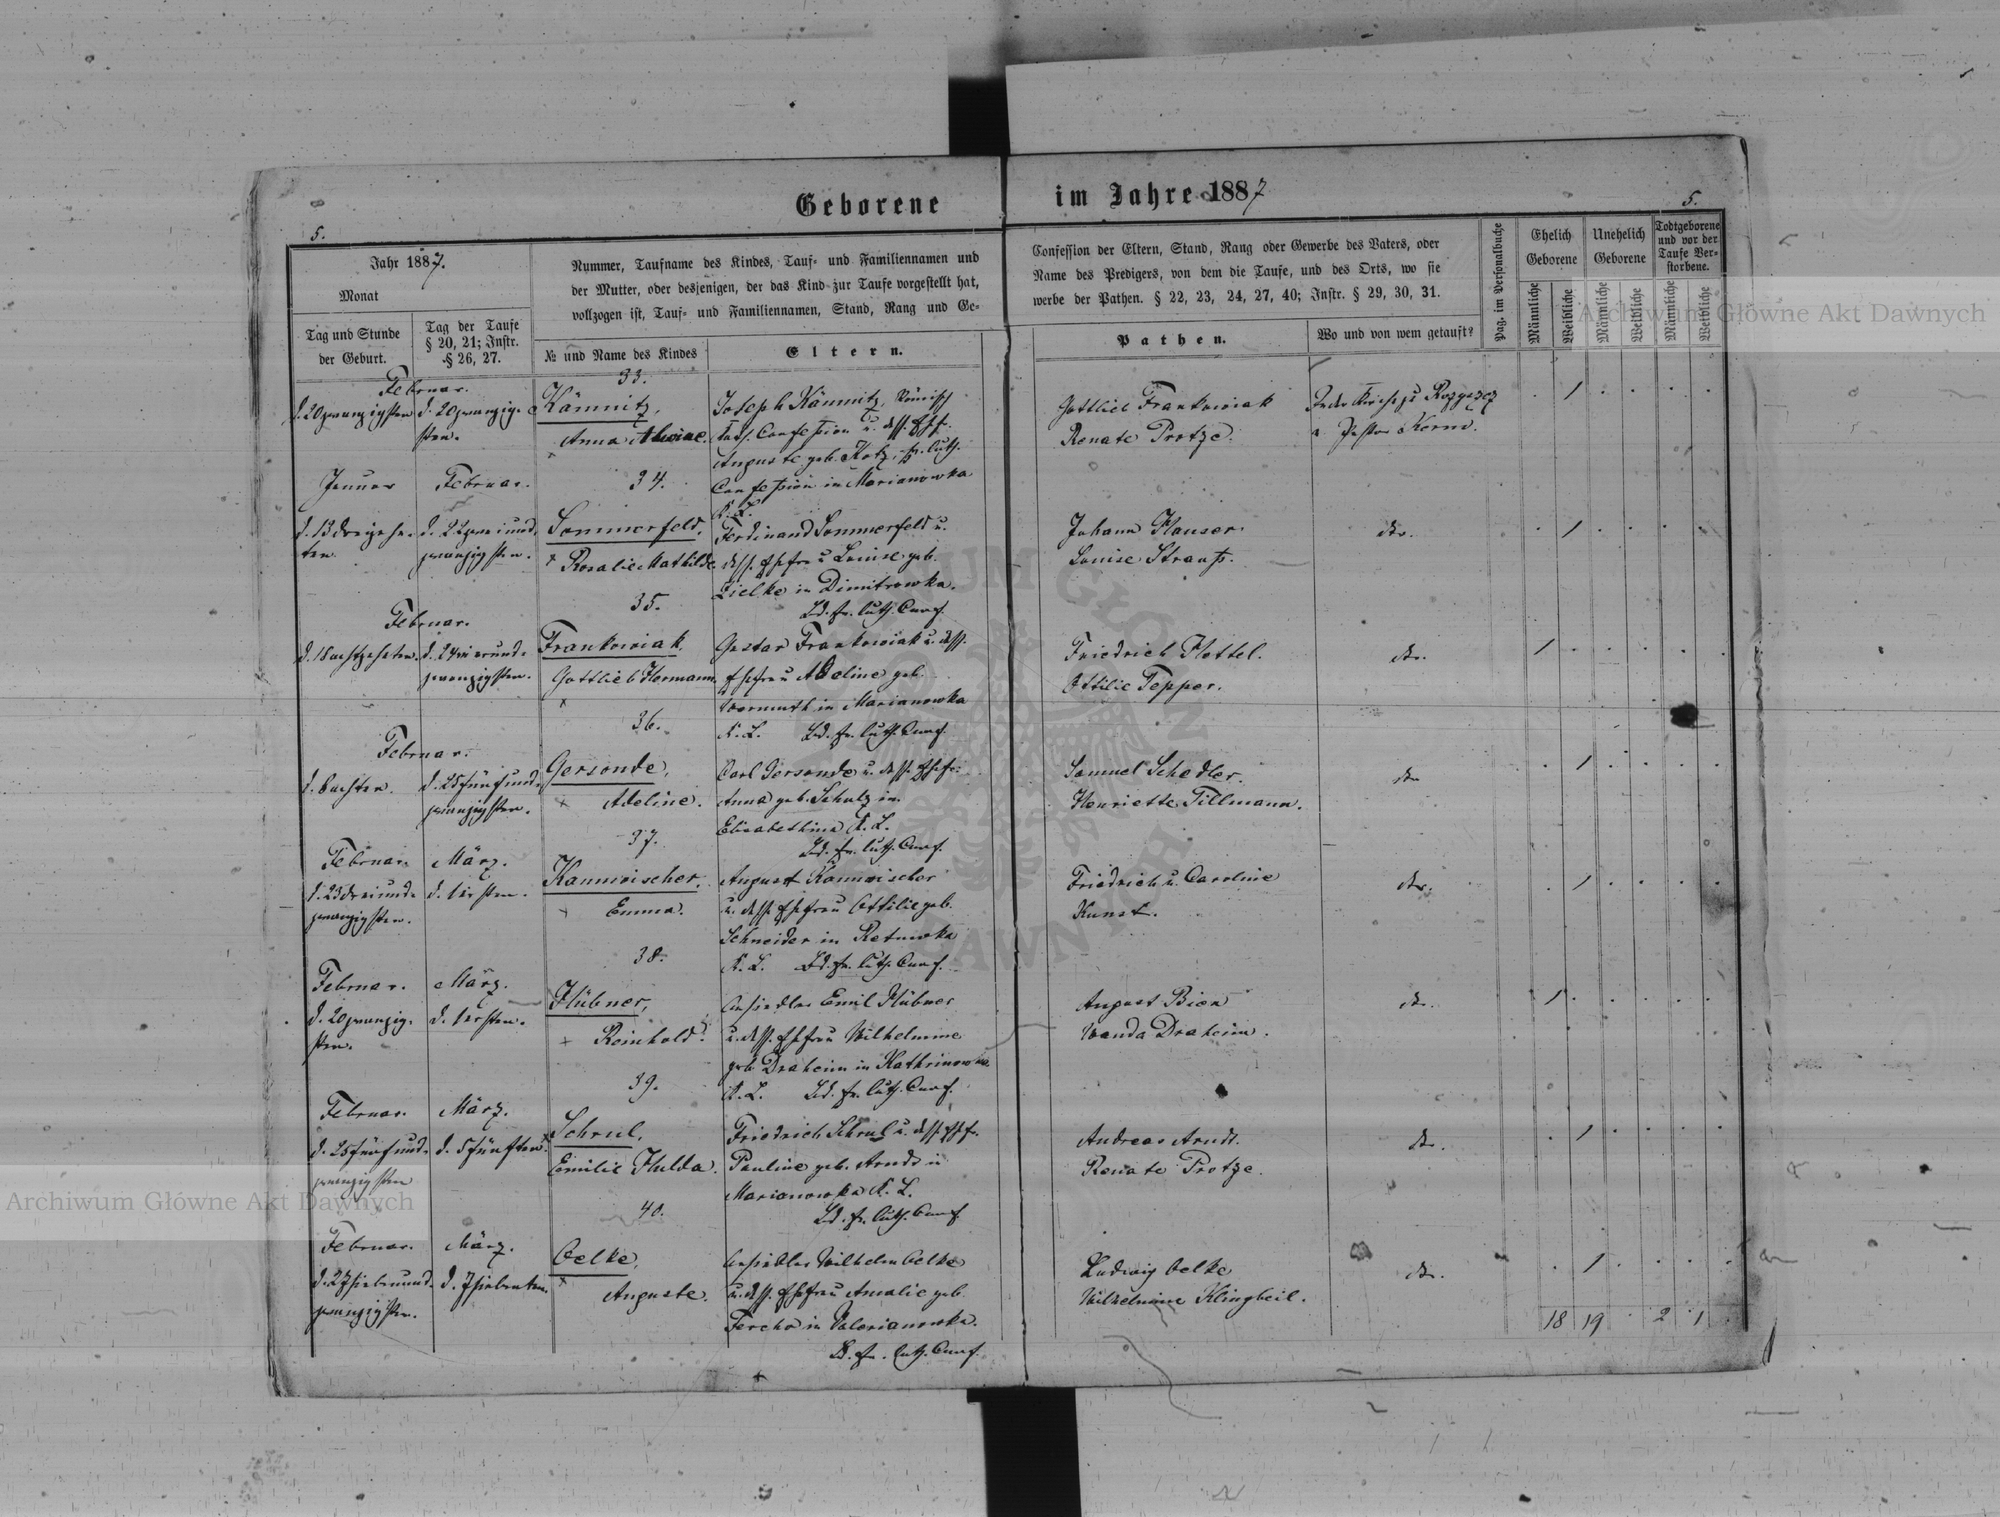 Geborene im Jahre 1887
5.
5.
Jahr 1887.
Monat
Tag und Stunde
der Geburt.
Tag der Taufe
§ 20, 21; Instr.
§ 26, 27.
Nummer, Taufname des Kindes, Tauf- und Familiennamen und
der Mutter, oder desjenigen, der das Kind zur Taufe vorgestellt hat,
vollzogen ist, Tauf- und Familiennamen, Stand, Rang und Ge-
№ und Name des Kindes
Eltern.
Confession der Eltern, Stand, Rang oder Gewerbe des Vaters, oder
Name des Predigers, von dem die Taufe, und des Orts, wo sie
werbe der Pathen. § 22, 23, 24, 27, 40; Instr. § 29, 30, 31.
Pathen.
Wo und von wem getauft?
Pag. im Personalbuche
Ehelich
Geborene
Unehelich
Geborene
Todtgeborene
und vor der
Taufe Ver-
storbene.
Männliche
Weibliche
Männliche
Weibliche
Männliche
Weibliche
Februar.
d. 20 zwanzigsten
d. 20 zwanzig-
sten.
33.
Kämnitz,
Anna Alwine.
Joseph Kämnitz, Römisch
Kath. Confession u. dess. Ehfr.
Auguste geb. Kotz, ev. luth.
Confession in Marianowka
K. L.
Gottlieb Frankowiak
Renate Protze.
In der Kirche zu Rozyszcz
v. Pastor Kerm.
1
Januar
Februar.
d. 13 dreizehn-
ten
d. 22 zweiund-
zwanzigsten.
34.
Sommerfeld,
Rosalie Mathilde
Ferdinand Sommerfeld u.
dess. Ehefrau Louise geb.
Zielke in Dimitrowka.
Bd. ev. luth. Conf.
Johann Hauser.
Louise Strauß.
do.
1
Februar.
d. 18 achtzehnten.
d. 24 vierund-
zwanzigsten.
35.
Frankowiak,
Gottlieb Hermann.
Gustav Frankowiak u. dess.
Ehefrau Adeline geb.
Wermuth in Marianowka
K. L. Bd. ev. luth. Conf.
Friedrich Hottel.
Ottilie Tepper.
do.
1
Februar.
d. 8 achten.
d. 25 fünfund-
zwanzigsten.
36.
Gersonde,
Adeline.
Carl Gersonde u. dess. Ehefr.
Anna geb. Schulz in
Elisabethina K. L.
Bd. ev. luth. Conf.
Samuel Schedler.
Henriette Tillmann.
do.
1
Februar.
März.
d. 23 dreiund-
zwanzigsten.
d. 1 ersten.
37.
Kannwischer,
Emma.
August Kannwischer
u. dess. Ehefrau Ottilie geb.
Schneider in Retuwka
K. L. Bd. ev. luth. Conf.
Friedrich u. Caroline
Kunst.
do.
1
Februar.
März.
d. 20 zwanzig-
sten.
d. 1 ersten.
38.
Hübner,
Reinhold.
Ansiedler Emil Hübner
u. dess. Ehefrau Wilhelmine
geb. Draheim in Kathrinowka
K. L. Bd. ev. luth. Conf.
August Bien
Wanda Draheim.
do.
1
Februar.
März.
d. 25 fünfund-
zwanzigsten
d. 5 fünften.
39.
Schrul,
Emilie Hulda.
Friedrich Schrul u. dess. Ehfr.
Pauline geb. Arndt in
Marianowka K. L.
Bd. ev. luth. Conf.
Andreas Arndt.
Renate Protze.
do.
1
Februar.
März.
d. 27 siebenund-
zwanzigsten.
d. 7 siebenten.
40.
Oelke,
Auguste.
Ansiedler Wilhelm Oelke
u. dess. Ehefrau Amalie geb.
Fercho in Valerianowka.
Bd. ev. luth. Conf.
Ludwig Oelke
Wilhelmine Klingbeil.
do.
1
18 19 2 1
Archiwum Główne Akt Dawnych
Archiwum Główne Akt Dawnych